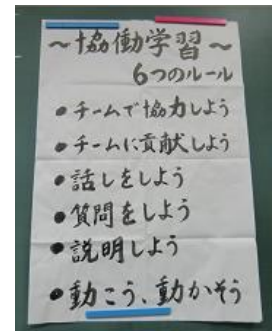 ～協働学習～
6つのルール
●チームで協力しよう
●チームに貢献しよう
●話しをしよう
●質問をしよう
●説明しよう
●動こう、動かそう